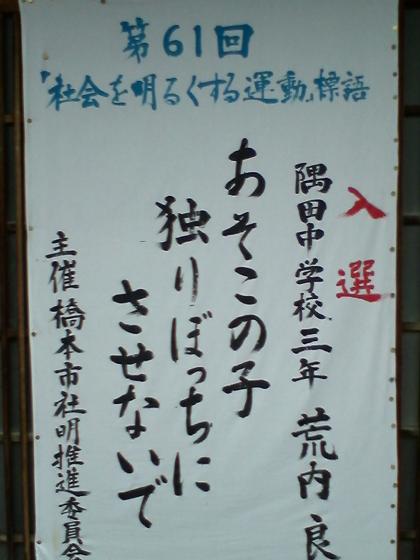 第61回
「社会を明るくする運動」標語
入選
隅田中学校三年 荒内 良
あそこの子
独りぼっちに
させないで
主催橋本市社明推進委員会